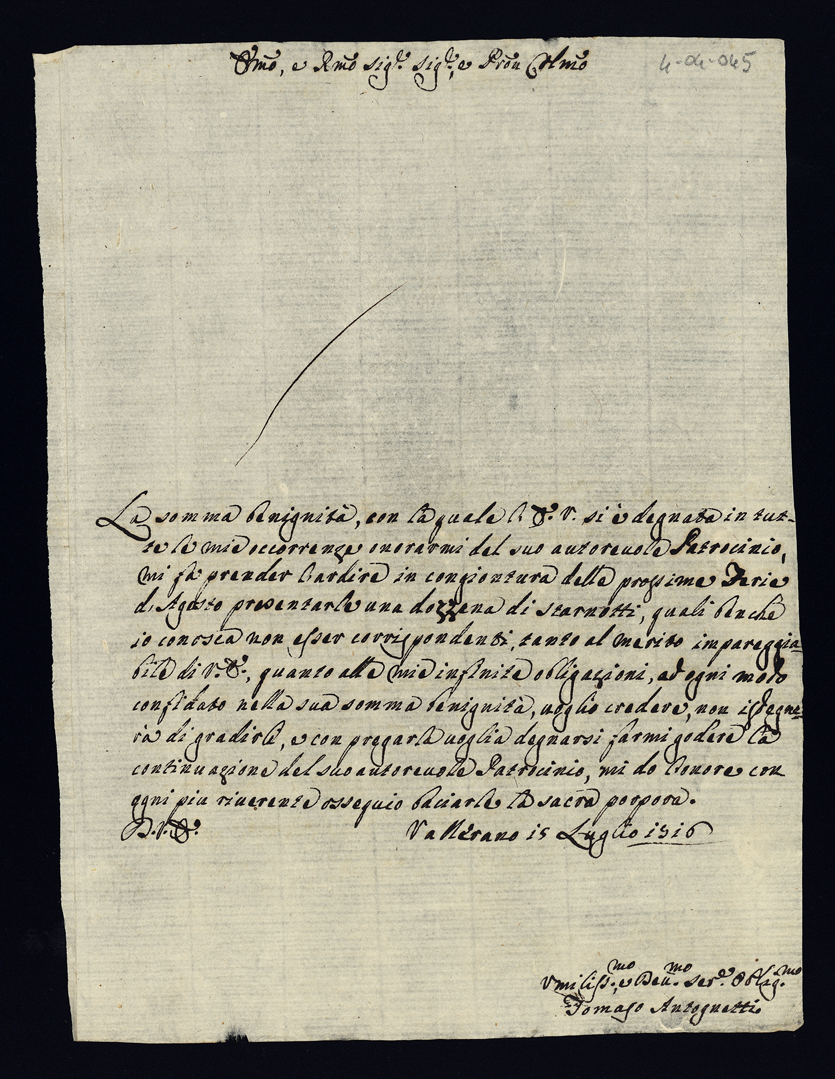 Emo, e Rmo sig.r sig.r, e Pron Colmo
4-04-045
La somma benignità, con la quale l'E. V. si è degnata in tut-
te le mie occorrenze onorarmi del suo autorevole Patrocinio,
mi fà prender l'ardire in congiontura delle prossime Ferie
d'Agosto presentarle una dozzena di starnotti, quali benche
io conosca non esser corrispondenti, tanto al merito impareggia-
bile di V. E., quanto alle mie infinite obligazioni, ad ogni modo
confidato nella sua somma benignità, voglio credere, non isdegne-
rà di gradirle, e con pregarla voglia degnarsi farmi godere la
continuazione del suo autorevole Patrocinio, mi do l'onore con
ogni piu riverente ossequio baciarle la sacra porpora.
D. V. E. Vallerano 15 Luglio
Vmiliss.mo, e Deu.mo ser.e Oblig.mo
Tomaso Antognetti